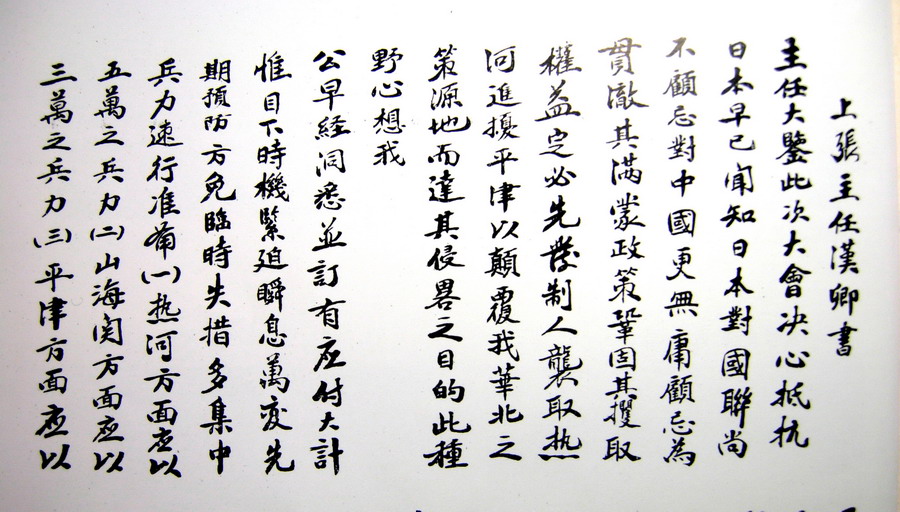 上張主任漢卿書
主任大鑒此次大會决心抵抗
日本早已闻知日本對國聯尚
不顧忌對中國更無庸顧忌為
貫澈其满蒙政策鞏固其攫取
權益定必先發制人襲取热
河進擾平津以顛覆我華北之
策源地而達其侵畧之目的此種
野心想我
公早経洞悉並訂有应付大計
惟目下時機緊迫瞬息萬变先
期預防方免臨時失措多集中
兵力速行准备(一)热河方面应以
五萬之兵力(二)山海関方面应以
三萬之兵力(三)平津方面应以